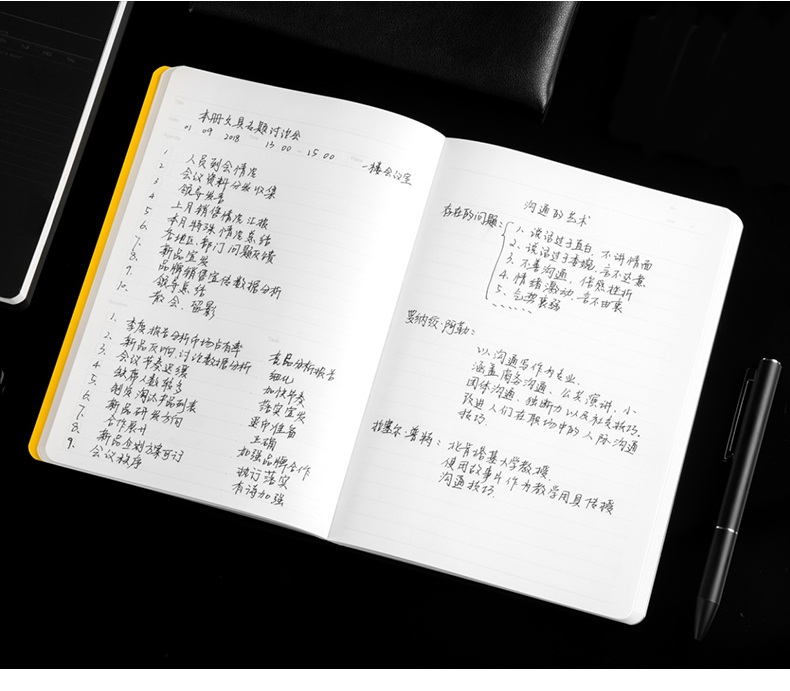 本册文具专题讨论会
01 09 2018 13 00 - 15 00 一楼会议室
1. 人员到会情况
2. 会议资料分发收集
3. 领导发言
4. 上月销售情况汇报
5. 本月特殊情况总结
6. 各地区部门问题反馈
7. 新品宣发
8. 品牌销售宣传数据分析
9. 领导总结
10. 散会、留影
1. 季度报告分析市场占有率 竞品分析报告
2. 新品反响,讨论数据分析 细化
3. 会议节奏迟缓 加快节奏
4. 缺席人数较多 落实宣发
5. 制定淘汰产品列表 集中准备
6. 新品研发方向 正确
7. 合作展开 加强品牌合作
8. 新品企划方案可订 执行落实
9. 会议秩序 有待加强
沟通的艺术
存在的问题:
1、说话过于直白,不讲情面
2、说话过于委婉,言不达意
3、不善沟通,信感挫折
4、情绪激动,言不由衷
5、气势衰弱
……
罗纳级·阿勒:
以沟通写作为专业.
涵盖商务沟通、公关演讲、小
团体沟通、独断力以及社交技巧,
改进人们在职场中的人际沟通
技巧.
拉塞尔·普科:北肯塔基大学教授.
使用故事片作为教学用具传授
沟通技巧.